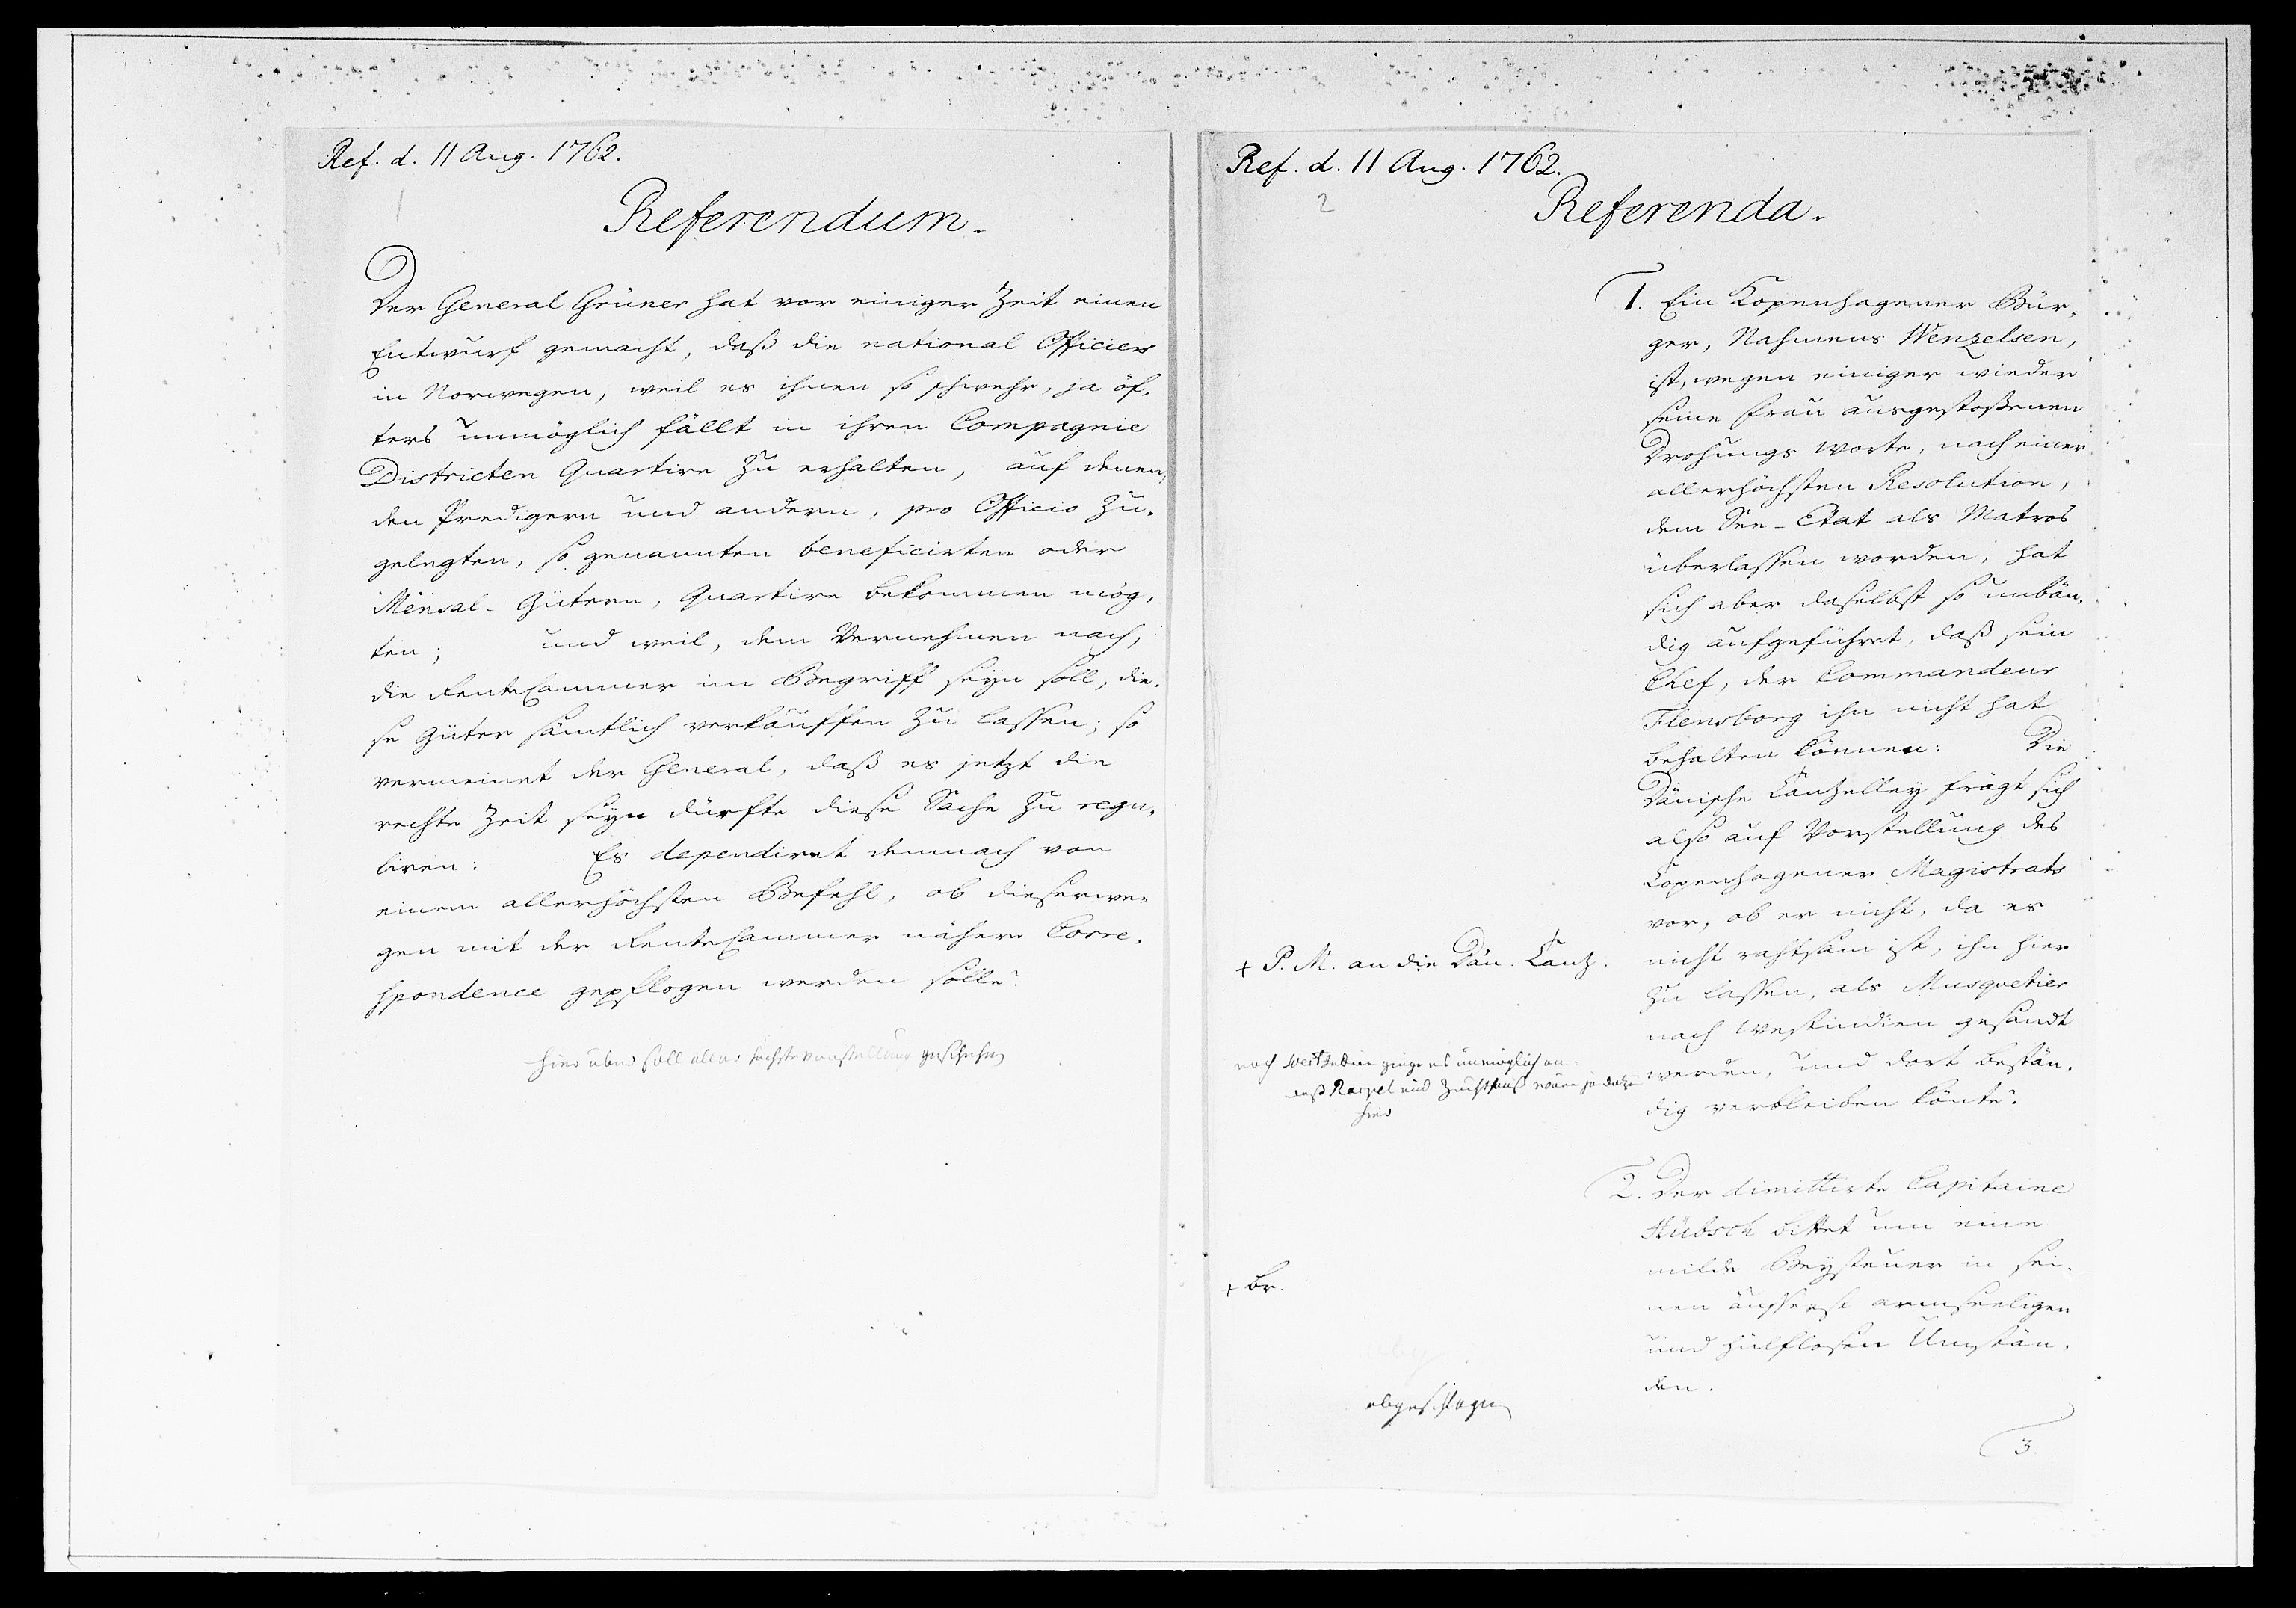 Ref. d. 11 Aug. 1762.
1
Referendum.
Der General Grüner hat vor einiger Zeit einen
Entwurf gemacht, daß die national Officiers
in Norwegen, weil es ihnen so schwehr, ja öf-
ters unmöglich fällt in ihren Compagnie
Districten Quartire zu erhalten, auf denen,
den Predigern und andern, pro Officio zu-
gelegten, so genannten beneficirten oder
Mensal-Gütern, Quartire bekommen mög-
ten; und weil, dem Vernehmen nach,
die RenteCammer im Begriff seyn soll, die-
se Güter sämtlich verkauffen zu lassen; so
vermeinet der General, daß es jetzt die
rechte Zeit seyn dürfte diese Sache zu regu-
liren: Es dependiret demnach von
einem allerhöchsten Befehl, ob dieserwe-
gen mit der RenteCammer nähere Corre-
spondence gepflogen werden solle?
hier über soll aller höchste vorstellung geschehen
Ref. d. 11 Aug. 1762.
2
Referenda.
1. Ein Kopenhagener Bür-
ger, Nahmens Wenzelsen,
ist, wegen einiger wieder
seine Frau ausgestoßenen
Drohungs Worte, nach einer
allerhöchsten Resolution,
dem See-Etat als Matros
überlassen worden, hat
sich aber daselbst so unbän-
dig aufgeführet, daß sein
Chef, der Commandeur
Flensborg ihn nicht hat
behalten können: Die
Dänische Cantzelley frägt sich
also auf Vorstellung des
Kopenhagener Magistrats
vor, ob er nicht, da es
nicht rahtsam ist, ihn hier
zu lassen, als Musquetier
nach Westindien gesandt
werden, und dort bestän-
dig verbleiben könte?
+ P. M. an die Dän. Cantz.
nach West Indien ginge es unmöglich an.
daß Raspel und Zuchthaus wäre ja dafür
hier
2. Der dimittirte Capitaine
Hübsch bittet um eine
milde Beysteuer in sei-
nen äusserst armseeligen
und hülflosen Umstän-
den.
+ Br.
abgeschlagen
3.